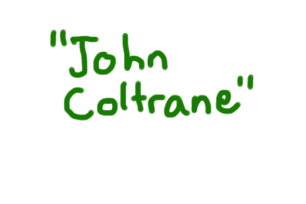 "John
Coltrane"